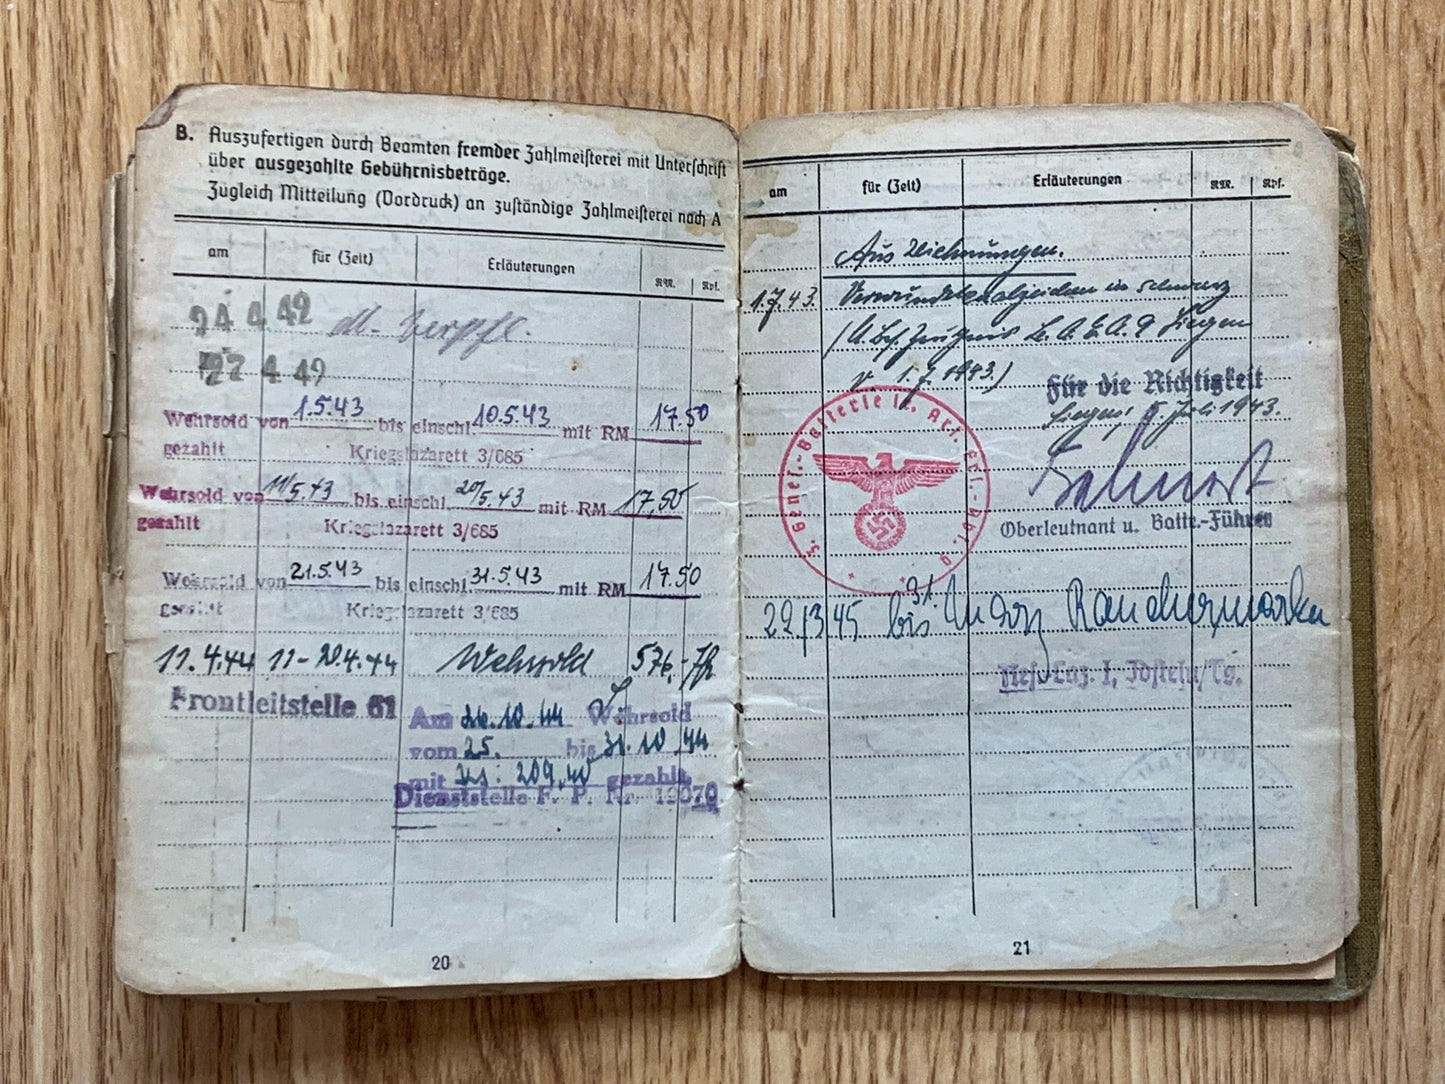 B. Auszufertigen durch Beamten fremder Zahlmeisterei mit Unterschrift
über ausgezahlte Gebührnisbeträge.
Zugleich Mitteilung (Vordruck) an zuständige Zahlmeisterei nach A
am für (Zeit) Erläuterungen RM. Rpf.
24 4 42
M. Verpfl.
27 4 42
Wehrsold von 1.5.43 bis einschl. 10.5.43 mit RM 17.50
gezahlt Kriegslazarett 3/685
Wehrsold von 11/5.43 bis einschl. 20/5.43 mit RM 17,50
gezahlt Kriegslazarett 3/685
Wehrsold von 21.5.43 bis einschl. 31.5.43 mit RM 17.50
gezahlt Kriegslazarett 3/685
11.4.44 11-20.4.44 Wehrsold 576,-
Frontleitstelle 61
Am 26.10.44 Wehrsold
vom 25. bis 31.10.44
mit 209,40 gezahlt.
Dienststelle F. P. Nr. 19070
20
am für (Zeit) Erläuterungen RM. Rpf.
Auszeichnungen.
1.7.43. Verwundetenabzeichen in schwarz
Siegen
v. 1.7.1943.)
Für die Richtigkeit
Siegen, Juli 1943.
Genes.-Batterie Art. Ers.-Abt.
Oberleutnant u. Battr.-Führer
29/3 45 bis 31. März Raucherwaren
Res. Laz. I, Idstein/Ts.
21